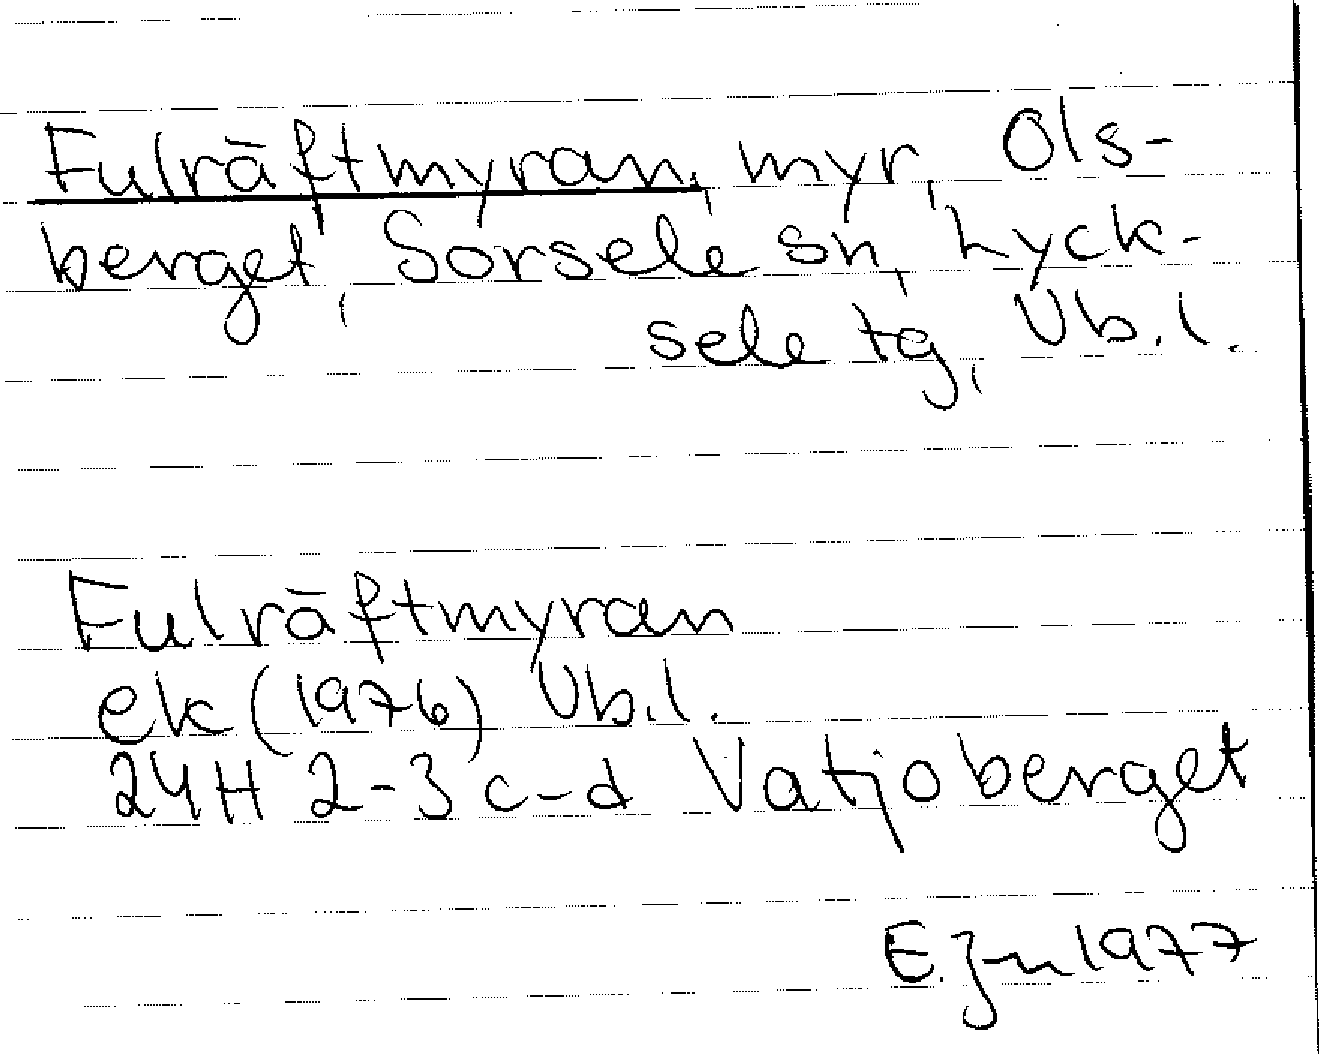 Fulräftmyran, myr, Ols-
berget, Sorsele sn, Lyck-
sele tg, Vb.l.
Fulräftmyran
ek (1976) Vb.l.
24H 2-3 c-d Vatjoberget
E.Jn 1977